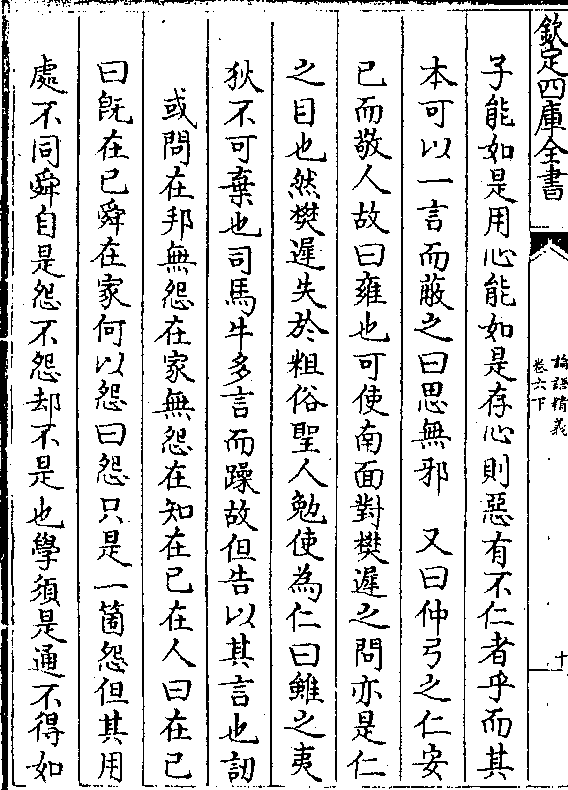 欽定四庫全書
論語精義
卷六下
十
子能如是用心能如是存心則惡有不仁者乎而其
本可以一言而蔽之曰思無邪　又曰仲弓之仁安
已而敬人故曰雍也可使南面對樊遲之問亦是仁
之目也然樊遲失於粗俗聖人勉使為仁曰雖之夷
狄不可棄也司馬牛多言而躁故但告以其言也訒
或問在邦無怨在家無怨在知在已在人曰在已
曰既在已舜在家何以怨曰怨只是一箇怨但其用
處不同舜自是怨不怨却不是也學須是通不得如